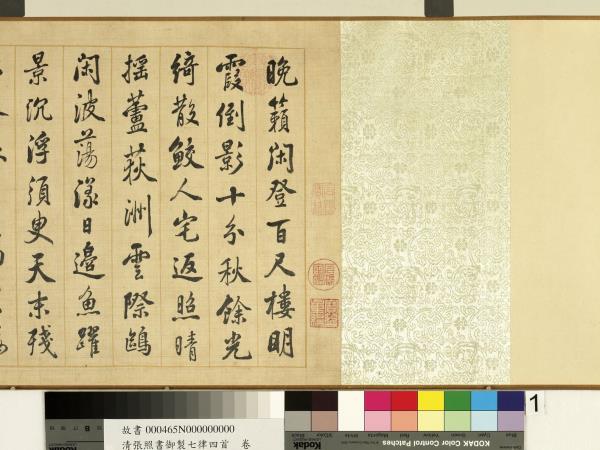 晚籟閑登百尺樓明
霞倒影十分秋餘光
綺散鮫人宅返照晴
搖蘆荻洲雲際鷗
閑波蕩漾日邊魚躍
景沉浮須臾天末殘
故書 000465N000000000
清張照書御製七律四首 卷
KODAK Color Control Patches
Blue Cyan Green Yellow Red Magenta White
Kodak
B
1